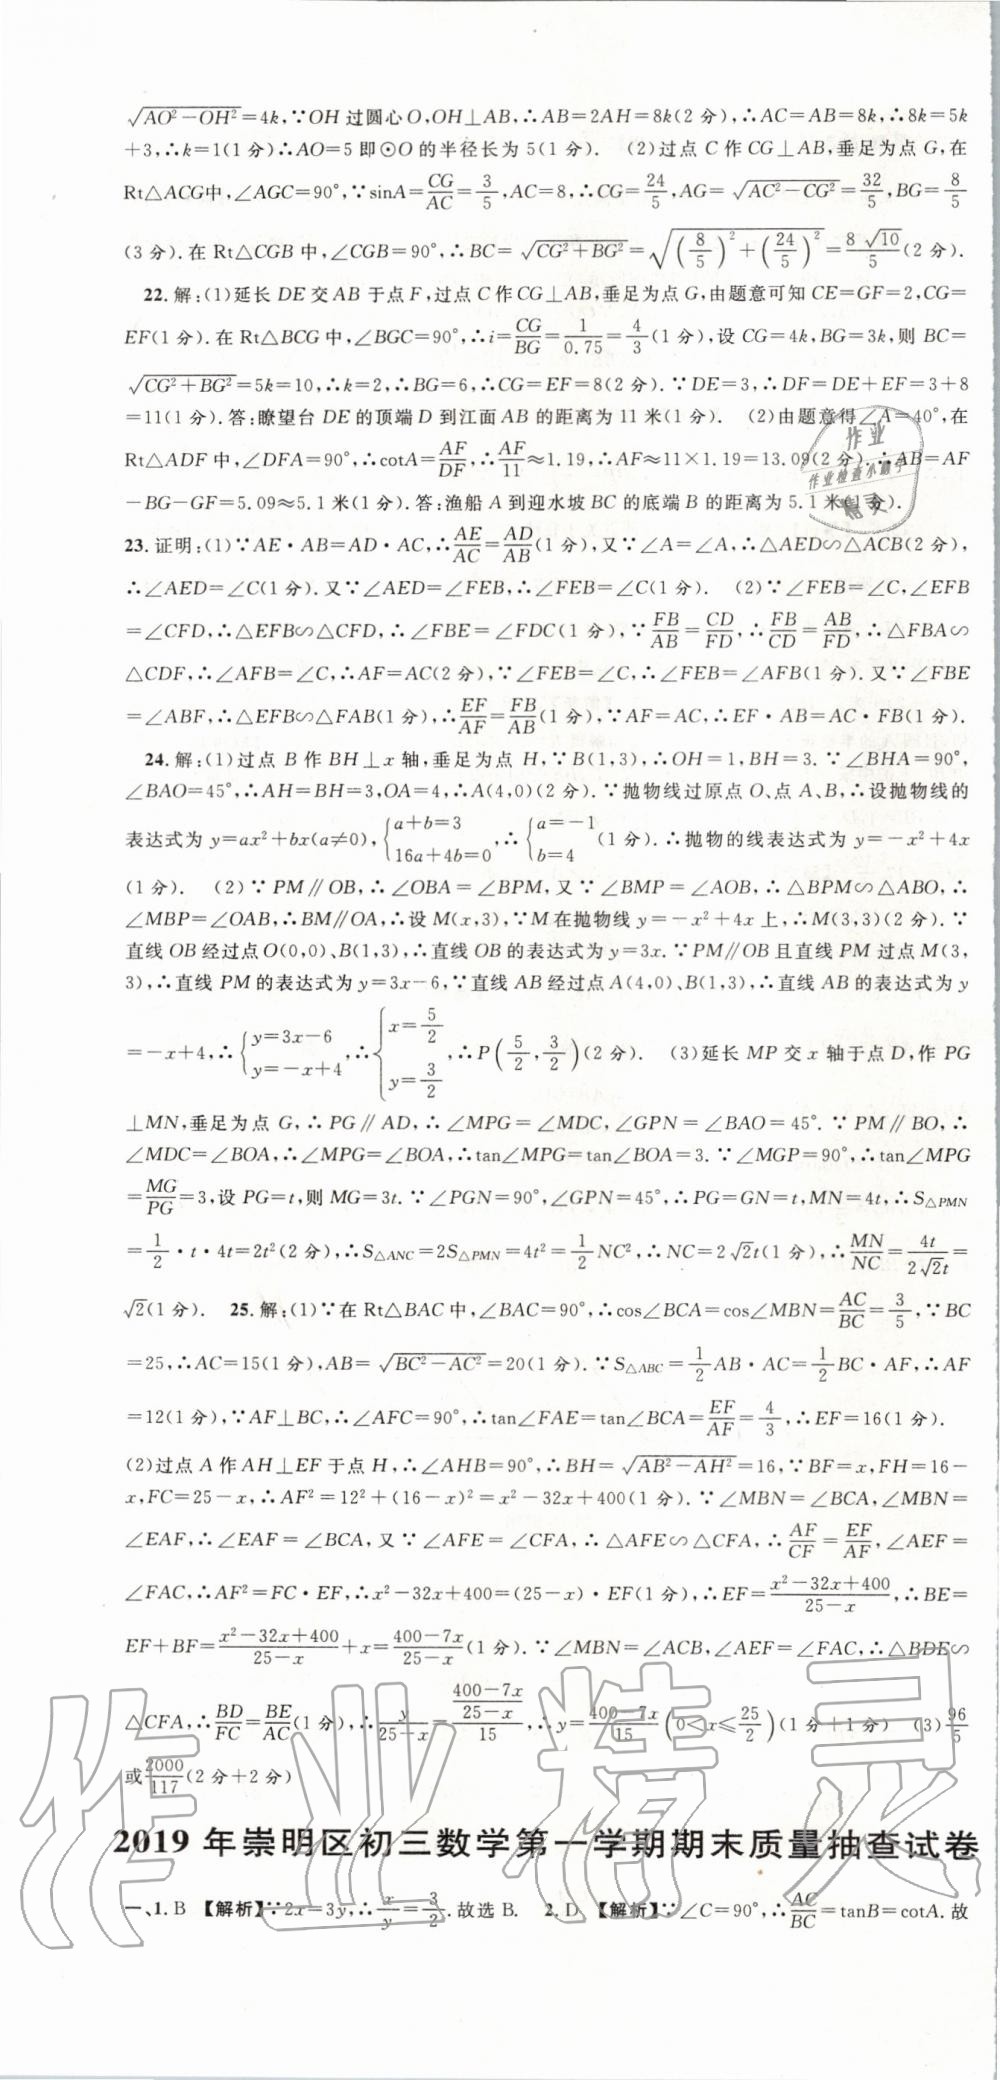 √(AO²－OH²)＝4k,∵OH 过圆心 O,OH⊥AB,∴AB＝2AH＝8k(2 分),∴AC＝AB＝8k,∴8k＝5k
＋3,∴k＝1(1 分)∴AO＝5 即⊙O 的半径长为 5(1 分). (2)过点 C 作 CG⊥AB,垂足为点 G,在
Rt△ACG中,∠AGC＝90°,∵sinA＝CG/AC＝3/5,AC＝8,∴CG＝24/5,AG＝√(AC²－CG²)＝32/5,BG＝8/5
(3 分).在 Rt△CGB 中,∠CGB＝90°,∴BC＝√(CG²＋BG²)＝√((8/5)²＋(24/5)²)＝8√10/5(2 分).
22.解:(1)延长 DE 交 AB 于点 F,过点 C 作CG⊥AB,垂足为点 G,由题意可知 CE＝GF＝2,CG＝
EF(1 分).在 Rt△BCG 中,∠BGC＝90°,∴i＝CG/BG＝1/0.75＝4/3(1 分),设 CG＝4k,BG＝3k,则 BC＝
√(CG²＋BG²)＝5k＝10,∴k＝2,∴BG＝6,∴CG＝EF＝8(2 分).∵DE＝3,∴DF＝DE＋EF＝3＋8
＝11(1 分).答:瞭望台 DE 的顶端 D 到江面 AB 的距离为 11 米(1 分). (2)由题意得∠A＝40°,在
Rt△ADF 中,∠DFA＝90°,∴cotA＝AF/DF,∴AF/11≈1.19,∴AF≈11×1.19＝13.09(2分).∴AB＝AF
－BG－GF＝5.09≈5.1 米(1 分).答:渔船 A 到迎水坡 BC 的底端 B 的距离为 5.1 米(1 分).
23.证明:(1)∵AE·AB＝AD·AC,∴AE/AC＝AD/AB(1 分),又∵∠A＝∠A,∴△AED∽△ACB(2 分),
∴∠AED＝∠C(1 分).又∵∠AED＝∠FEB,∴∠FEB＝∠C(1 分). (2)∵∠FEB＝∠C,∠EFB
＝∠CFD,∴△EFB∽△CFD,∴∠FBE＝∠FDC(1 分),∵FB/AB＝CD/FD,∴FB/CD＝AB/FD,∴△FBA∽
△CDF,∴∠AFB＝∠C,∴AF＝AC(2 分),∵∠FEB＝∠C,∴∠FEB＝∠AFB(1 分).又∵∠FBE
＝∠ABF,∴△EFB∽△FAB(1 分),∴EF/AF＝FB/AB(1 分).∵AF＝AC,∴EF·AB＝AC·FB(1 分).
24.解:(1)过点 B 作 BH⊥x 轴,垂足为点 H,∵B(1,3),∴OH＝1,BH＝3.∵∠BHA＝90°,
∠BAO＝45°,∴AH＝BH＝3,OA＝4,∴A(4,0)(2 分).∵抛物线过原点 O、点 A、B,∴设抛物线的
表达式为 y＝ax²＋bx(a≠0),{a＋b＝3 16a＋4b＝0,∴{a＝－1 b＝4(1 分).∴抛物的线表达式为 y＝－x²＋4x
(1 分). (2)∵PM∥OB,∴∠OBA＝∠BPM,又∵∠BMP＝∠AOB,∴△BPM∽△ABO,∴
∠MBP＝∠OAB,∴BM∥OA,∴设 M(x,3),∵M 在抛物线 y＝－x²＋4x 上,∴M(3,3)(2 分).∵
直线 OB 经过点 O(0,0)、B(1,3),∴直线 OB 的表达式为 y＝3x.∵PM∥OB 且直线 PM 过点 M(3,
3),∴直线 PM 的表达式为 y＝3x－6,∵直线 AB 经过点 A(4,0)、B(1,3),∴直线 AB 的表达式为 y
＝－x＋4,∴{y＝3x－6 y＝－x＋4,∴{x＝5/2 y＝3/2,∴P(5/2,3/2)(2 分). (3)延长 MP 交 x 轴于点 D,作 PG
⊥MN,垂足为点 G,∴PG∥AD,∴∠MPG＝∠MDC,∠GPN＝∠BAO＝45°.∵PM∥BO,∴
∠MDC＝∠BOA,∴∠MPG＝∠BOA,∴tan∠MPG＝tan∠BOA＝3.∵∠MGP＝90°,∴tan∠MPG
＝MG/PG＝3,设 PG＝t,则 MG＝3t.∵∠PGN＝90°,∠GPN＝45°,∴PG＝GN＝t,MN＝4t,∴S△PMN
＝1/2·t·4t＝2t²(2 分),∴S△ANC＝2S△PMN＝4t²＝1/2NC²,∴NC＝2√2t(1 分),∴MN/NC＝4t/2√2t＝
√2(1 分). 25.解:(1)∵在 Rt△BAC 中,∠BAC＝90°,∴cos∠BCA＝cos∠MBN＝AC/BC＝3/5,∵BC
＝25,∴AC＝15(1 分),AB＝√(BC²－AC²)＝20(1 分).∵S△ABC＝1/2AB·AC＝1/2BC·AF,∴AF
＝12(1 分),∵AF⊥BC,∴∠AFC＝90°,∴tan∠FAE＝tan∠BCA＝EF/AF＝4/3,∴EF＝16(1 分).
(2)过点 A 作 AH⊥EF 于点 H,∴∠AHB＝90°,∴BH＝√(AB²－AH²)＝16,∵BF＝x,FH＝16－
x,FC＝25－x,∴AF²＝12²＋(16－x)²＝x²－32x＋400(1 分).∵∠MBN＝∠BCA,∠MBN＝
∠EAF,∴∠EAF＝∠BCA,又∵∠AFE＝∠CFA,∴△AFE∽△CFA,∴AF/CF＝EF/AF,∠AEF＝
∠FAC,∴AF²＝FC·EF,∴x²－32x＋400＝(25－x)·EF(1 分),∴EF＝(x²－32x＋400)/(25－x),∴BE＝
EF＋BF＝(x²－32x＋400)/(25－x)＋x＝(400－7x)/(25－x)(1 分).∵∠MBN＝∠ACB,∠AEF＝∠FAC,∴△BDE∽
△CFA,∴BD/FC＝BE/AC(1 分),∴y/(25－x)＝((400－7x)/(25－x))/15,∴y＝(400－7x)/15(0＜x≤25/2)(1 分＋1 分) (3)96/5
或2000/117(2 分＋2 分)
2019 年崇明区初三数学第一学期期末质量抽查试卷
一、1. B 【解析】∵2x＝3y,∴x/y＝3/2.故选 B. 2. D 【解析】∵∠C＝90°,∴AC/BC＝tanB＝cotA. 故
作业精灵
作业
作业检查小帮手
精灵